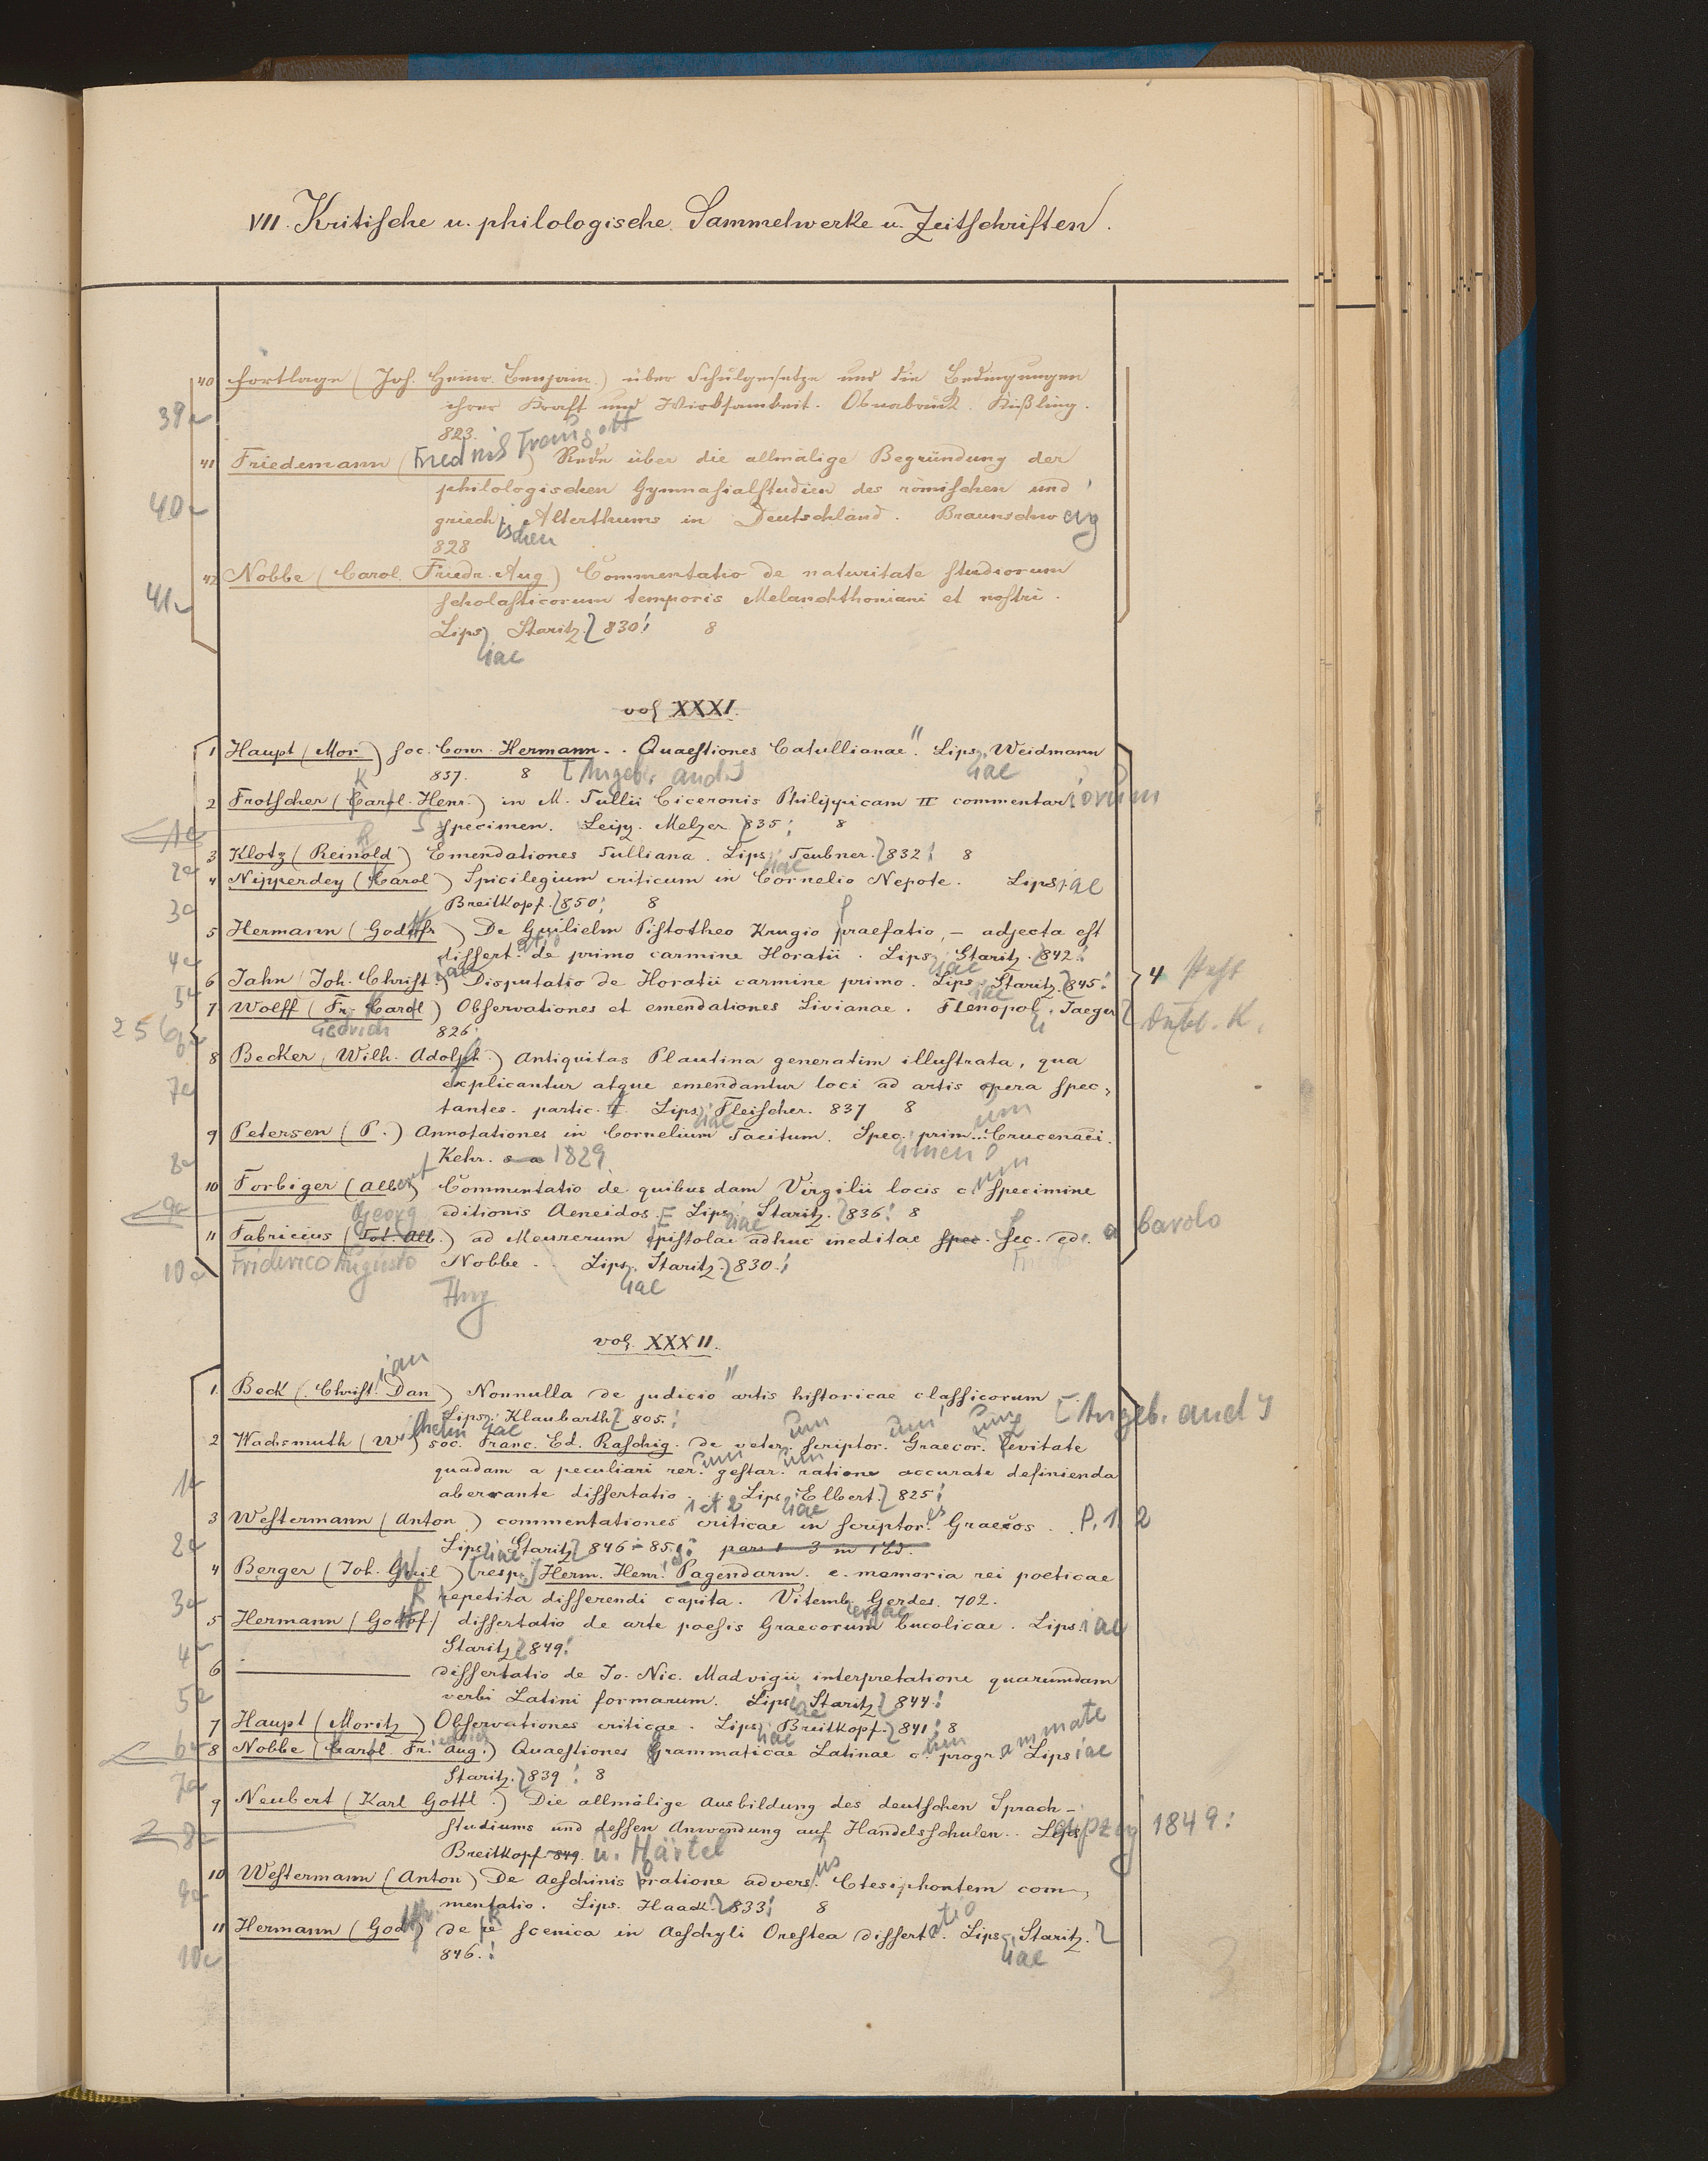 VII. Kritische u. philologische Sammelwerke u. Zeitschriften.
40 Fortlage (Joh. Heinr. Benjam.) über Schulgesetze und die Bedingungen
39
ihrer Kraft und Wirksamkeit. Osnabrück. Kißling.
823.
41 Friedemann (Friedrich Traugott) Rede über die allmälige Begründung der
philologischen Gymnasialstudien des römischen und
40
griechischen Alterthums in Deutschland. Braunschweig
828
42 Nobbe (Carol. Friedr. Aug) Commentatio de naturitate studiorum
41
scholasticorum temporis Melanchthoniani et nostri.
Lipsiae Staritz 830! 8
vol XXXI.
1 Haupt (Mor.) soc. Conr. Hermann. . Quaestiones Catullianae". Lipsiae, Weidmann
837. 8 [Angeb. and.]
2 Frotscher (Karl Henr.) in M. Tullii Ciceronis Philippicam II commentariorum
1
Specimen. Leipz. Melzer 835! 8
3 Klotz (Reinhold) Emendationes Tulliana. Lipsiae Teubner. 832! 8
2
4 Nipperdey (Carol) Spicilegium criticum in Cornelio Nepote. Lipsiae
3
Breitkopf. 850! 8
5 Hermann (Godfr) De Guilielm Pistotheo Krugio praefatio, – adjecta est
4
dissertatio de primo carmine Horatii. Lipsiae Staritz. 842!
6 Jahn Joh. Christ. Disputatio de Horatii carmine primo. Lipsiae Staritz. 845!
4 fehlt
5
7 Wolff (Fr. Carol) Observationes et emendationes Livianae. Flenopoli, Jaeger
Dubl. K.
256
826.
8 Becker (Wilh. Adolph.) Antiquitas Plautina generatim illustrata, qua
7
explicantur atque emendantur loci ad artis opera spec-
tantes. partic. I. Lipsiae Fleischer. 837 8
9 Petersen (P.) Annotationes in Cornelium Tacitum. Specimen primum. Crucenaci.
8
Kehr. s a 1829
10 Forbiger (Albert) Commentatio de quibusdam Virgilii locis cum specimine
9
editionis Aeneidos. Lipsiae Staritz. 836! 8
11 Fabricius (Georg) ad Meurerum epistolae adhuc ineditae spec. Sec. ed. a Carolo
10
Friderico Augusto Nobbe. . Lipsiae, Staritz. 830!
vol. XXXII.
1. Beck (Christian Dan) Nonnulla de judicio" artis historicae classicorum
[Angeb. and]
Lipsiae Klaubarth 805.!
2 Wachsmuth (Wilhelm) soc. Franc. Ed. Raschig. de veterum scriptorum Graecorum levitate
quadam a peculiari rerum gestarum ratione accurate definienda
1
aberrante dissertatio. . Lipsiae Elbert. 825!
3 Westermann (Anton) commentationes criticae in scriptores Graecos. P. 1. 2
1 et 2
2
Lipsiae Staritz 846 – 851! pars 1 3 in 1 Bd.
4 Berger (Joh. Wil) (resp.) Herm. Henr. Pagendarm. e. memoria rei poeticae
3
Repetita disserendi capita. Vitembergae Gerdes. 702.
5 Hermann (Gottf) dissertatio de arte poesis Graecorum bucolicae. Lipsiae
4
Staritz 849!
6 ——— dissertatio de Jo. Nic. Madvigii interpretatione quarumdam
5
verbi Latini formarum. Lipsiae Staritz 844!
7 Haupt (Moritz) Observationes criticae. Lipsiae Breitkopf. 841! 8
6
8 Nobbe (Carol Fr. Aug.) Quaestiones Grammaticae Latinae cum programmate Lipsiae
7
Staritz. 839! 8
9 Neubert (Karl Gottl.) Die allmälige Ausbildung des deutschen Sprach-
8
studiums und dessen Anwendung auf Handelsschulen. . Leipzig 1849:
Breitkopf 849. u. Härtel
10 Westermann (Anton) De Aeschinis oratione adversus Ctesiphontem com-
9
mentatio. Lips. Haack. 833! 8
11 Hermann (Godfr) de re scenica in Aeschyli Orestea dissertatio. Lipsiae Staritz.
10
846.!
3